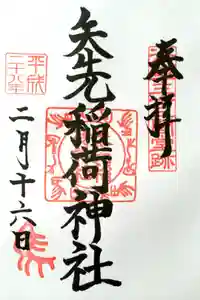 奉拝
矢先稲荷神社
平成二十八年
二月十六日